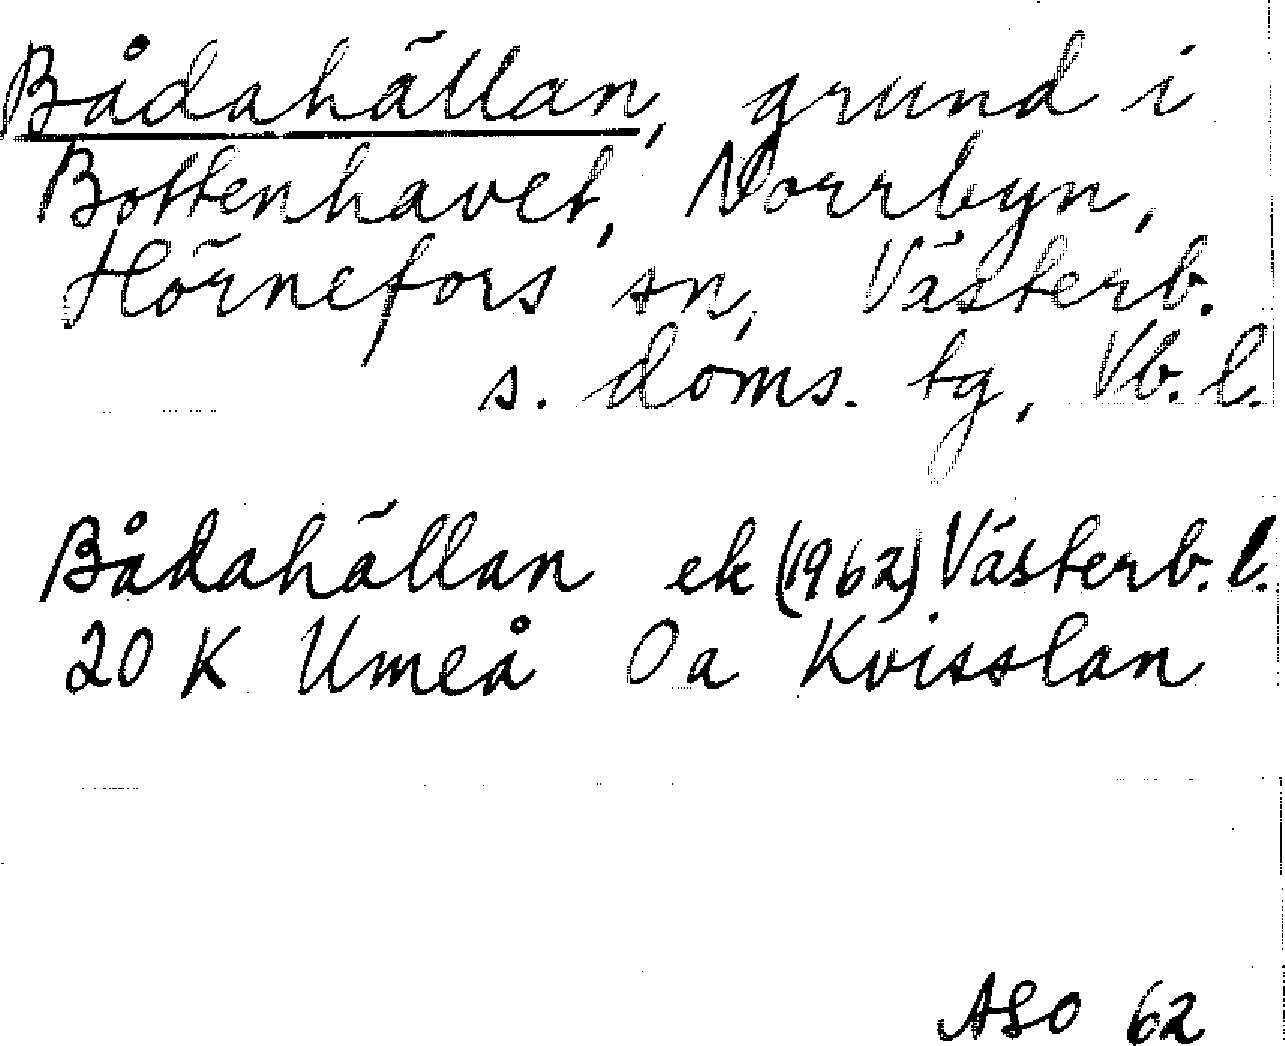 Bådahällan, grund i
Bottenhavet, Norrbyn,
Hörnefors sn, Västerb.
s. doms. tg, Vb. l.
Bådahällan ek (1962) Västerb. l.
20 K Umeå 0a Kvisslan
ASO 62